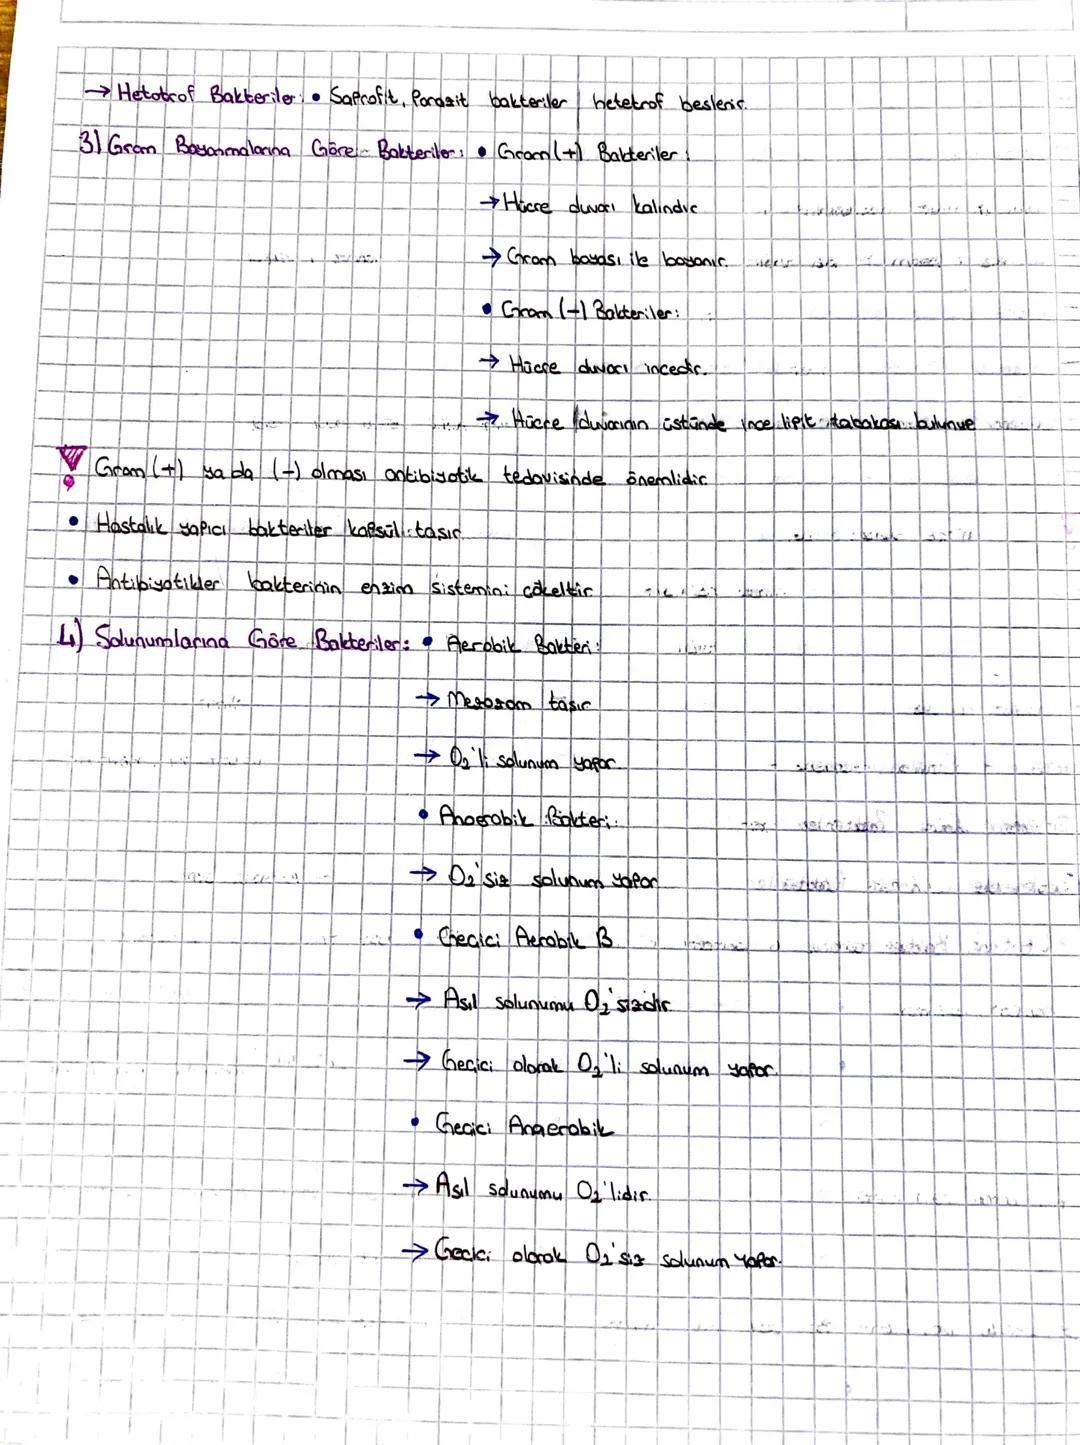 → Hetotrof Bakteriler: • Saprofit, Parazit bakteriler hetetrof beslenir.
3) Gram Boyanmalarına Göre Bakteriler: • Gram (+) Bakteriler:
→ Hücre duvarı kalındır
→ Gram boyası ile boyanır.
• Gram (-) Bakteriler:
→ Hücre duvarı incedir.
→ Hücre duvarının üstünde ince lipit tabakası bulunur
Gram (+) ya da (-) olması antibiyotik tedavisinde önemlidir
• Hastalık yapıcı bakteriler kapsül taşır.
• Antibiyotikler bakterinin enzim sistemini çökeltir
4) Solunumlarına Göre Bakteriler: • Aerobik Bakteri:
→ Mezozom taşır
→ O₂'li solunum yapar.
• Anaerobik Bakteri:
→ O₂'siz solunum yapar
• Geçici Aerobik B
→ Asıl solunumu O₂'sizdir.
→ Geçici olarak O₂'li solunum yapar.
• Geçici Anaerobik
→ Asıl solunumu O₂'lidir.
→ Gecici olarak O₂'siz solunum yapar.